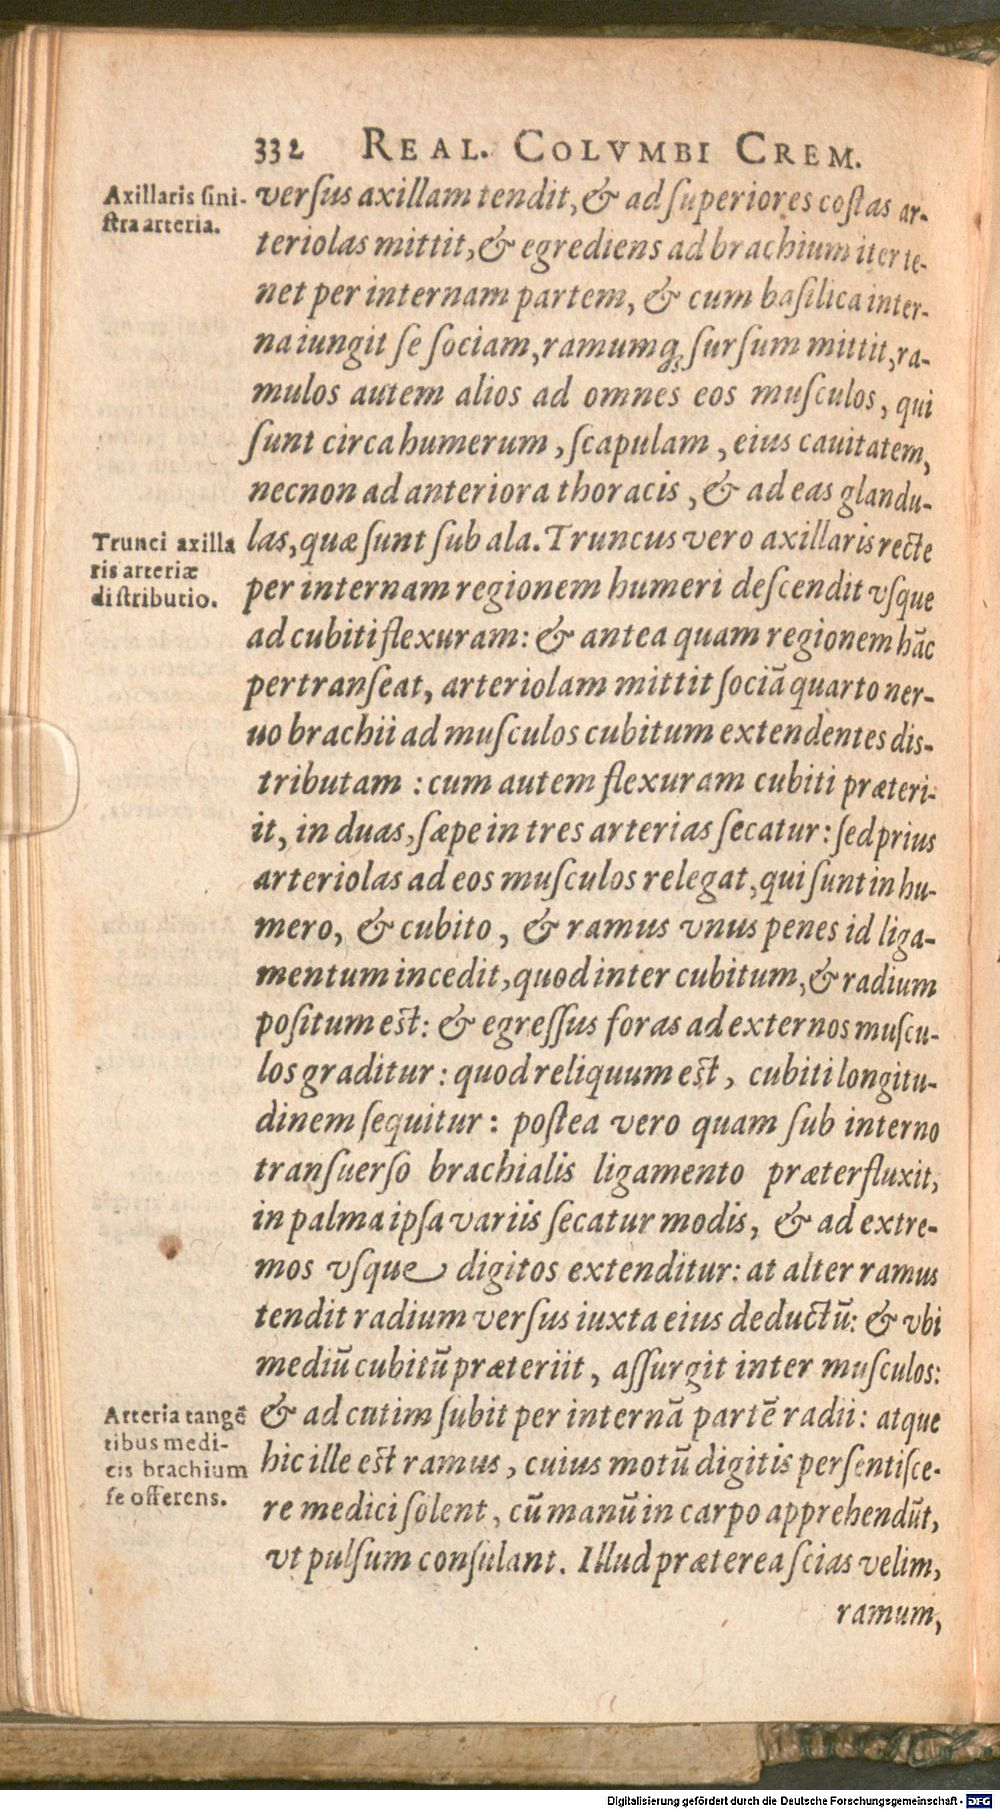 332 REAL. COLVMBI CREM.
Axillaris sini-
stra arteria.
versus axillam tendit, & ad superiores costas ar-
teriolas mittit, & egrediens ad brachium iter te-
net per internam partem, & cum basilica inter-
na iungit se sociam, ramumq; sursum mittit, ra-
mulos autem alios ad omnes eos musculos, qui
sunt circa humerum, scapulam, eius cauitatem,
necnon ad anteriora thoracis, & ad eas glandu-
Trunci axilla
ris arteriæ
distributio.
las, quæ sunt sub ala. Truncus vero axillaris recte
per internam regionem humeri descendit vsque
ad cubiti flexuram: & antea quam regionem hāc
pertranseat, arteriolam mittit sociā quarto ner-
uo brachii ad musculos cubitum extendentes dis-
tributam: cum autem flexuram cubiti præteri-
it, in duas, sæpe in tres arterias secatur: sed prius
arteriolas ad eos musculos relegat, qui sunt in hu-
mero, & cubito, & ramus vnus penes id liga-
mentum incedit, quod inter cubitum, & radium
positum est: & egressus foras ad externos muscu-
los graditur: quod reliquum est, cubiti longitu-
dinem sequitur: postea vero quam sub interno
transuerso brachialis ligamento præterfluxit,
in palma ipsa variis secatur modis, & ad extre-
mos vsque digitos extenditur: at alter ramus
tendit radium versus iuxta eius deductū: & vbi
mediū cubitū præteriit, assurgit inter musculos:
Arteria tangē
tibus medi-
cis brachium
se offerens.
& ad cutim subit per internā partē radii: atque
hic ille est ramus, cuius motū digitis persentisce-
re medici solent, cū manū in carpo apprehendūt,
vt pulsum consulant. Illud præterea scias velim,
ramum,
Digitalisierung gefördert durch die Deutsche Forschungsgemeinschaft - DFG